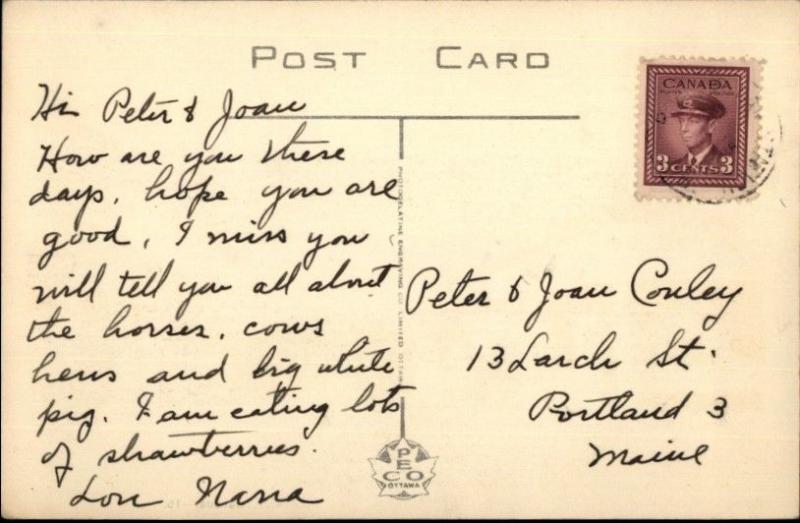 POST CARD
Hi Peter & Joan
How are you these
days, hope you are
good, I miss you
will tell you all about
the horses, cows
hens and big white
pig. I am eating lots
of strawberries.
Love Nana
PHOTOGELATINE ENGRAVING CO. LIMITED OTTAWA
PECO
OTTAWA
CANADA
POSTES POSTAGE
3 CENTS 3
Peter & Joan Conley
13 Larch St.
Portland 3
Maine